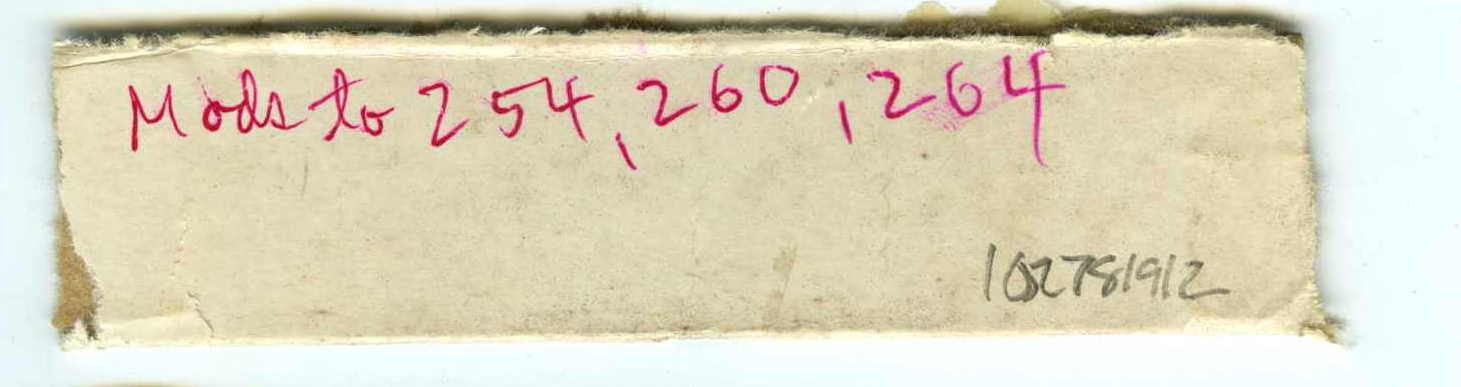 Mods to 254, 260, 264
102781912